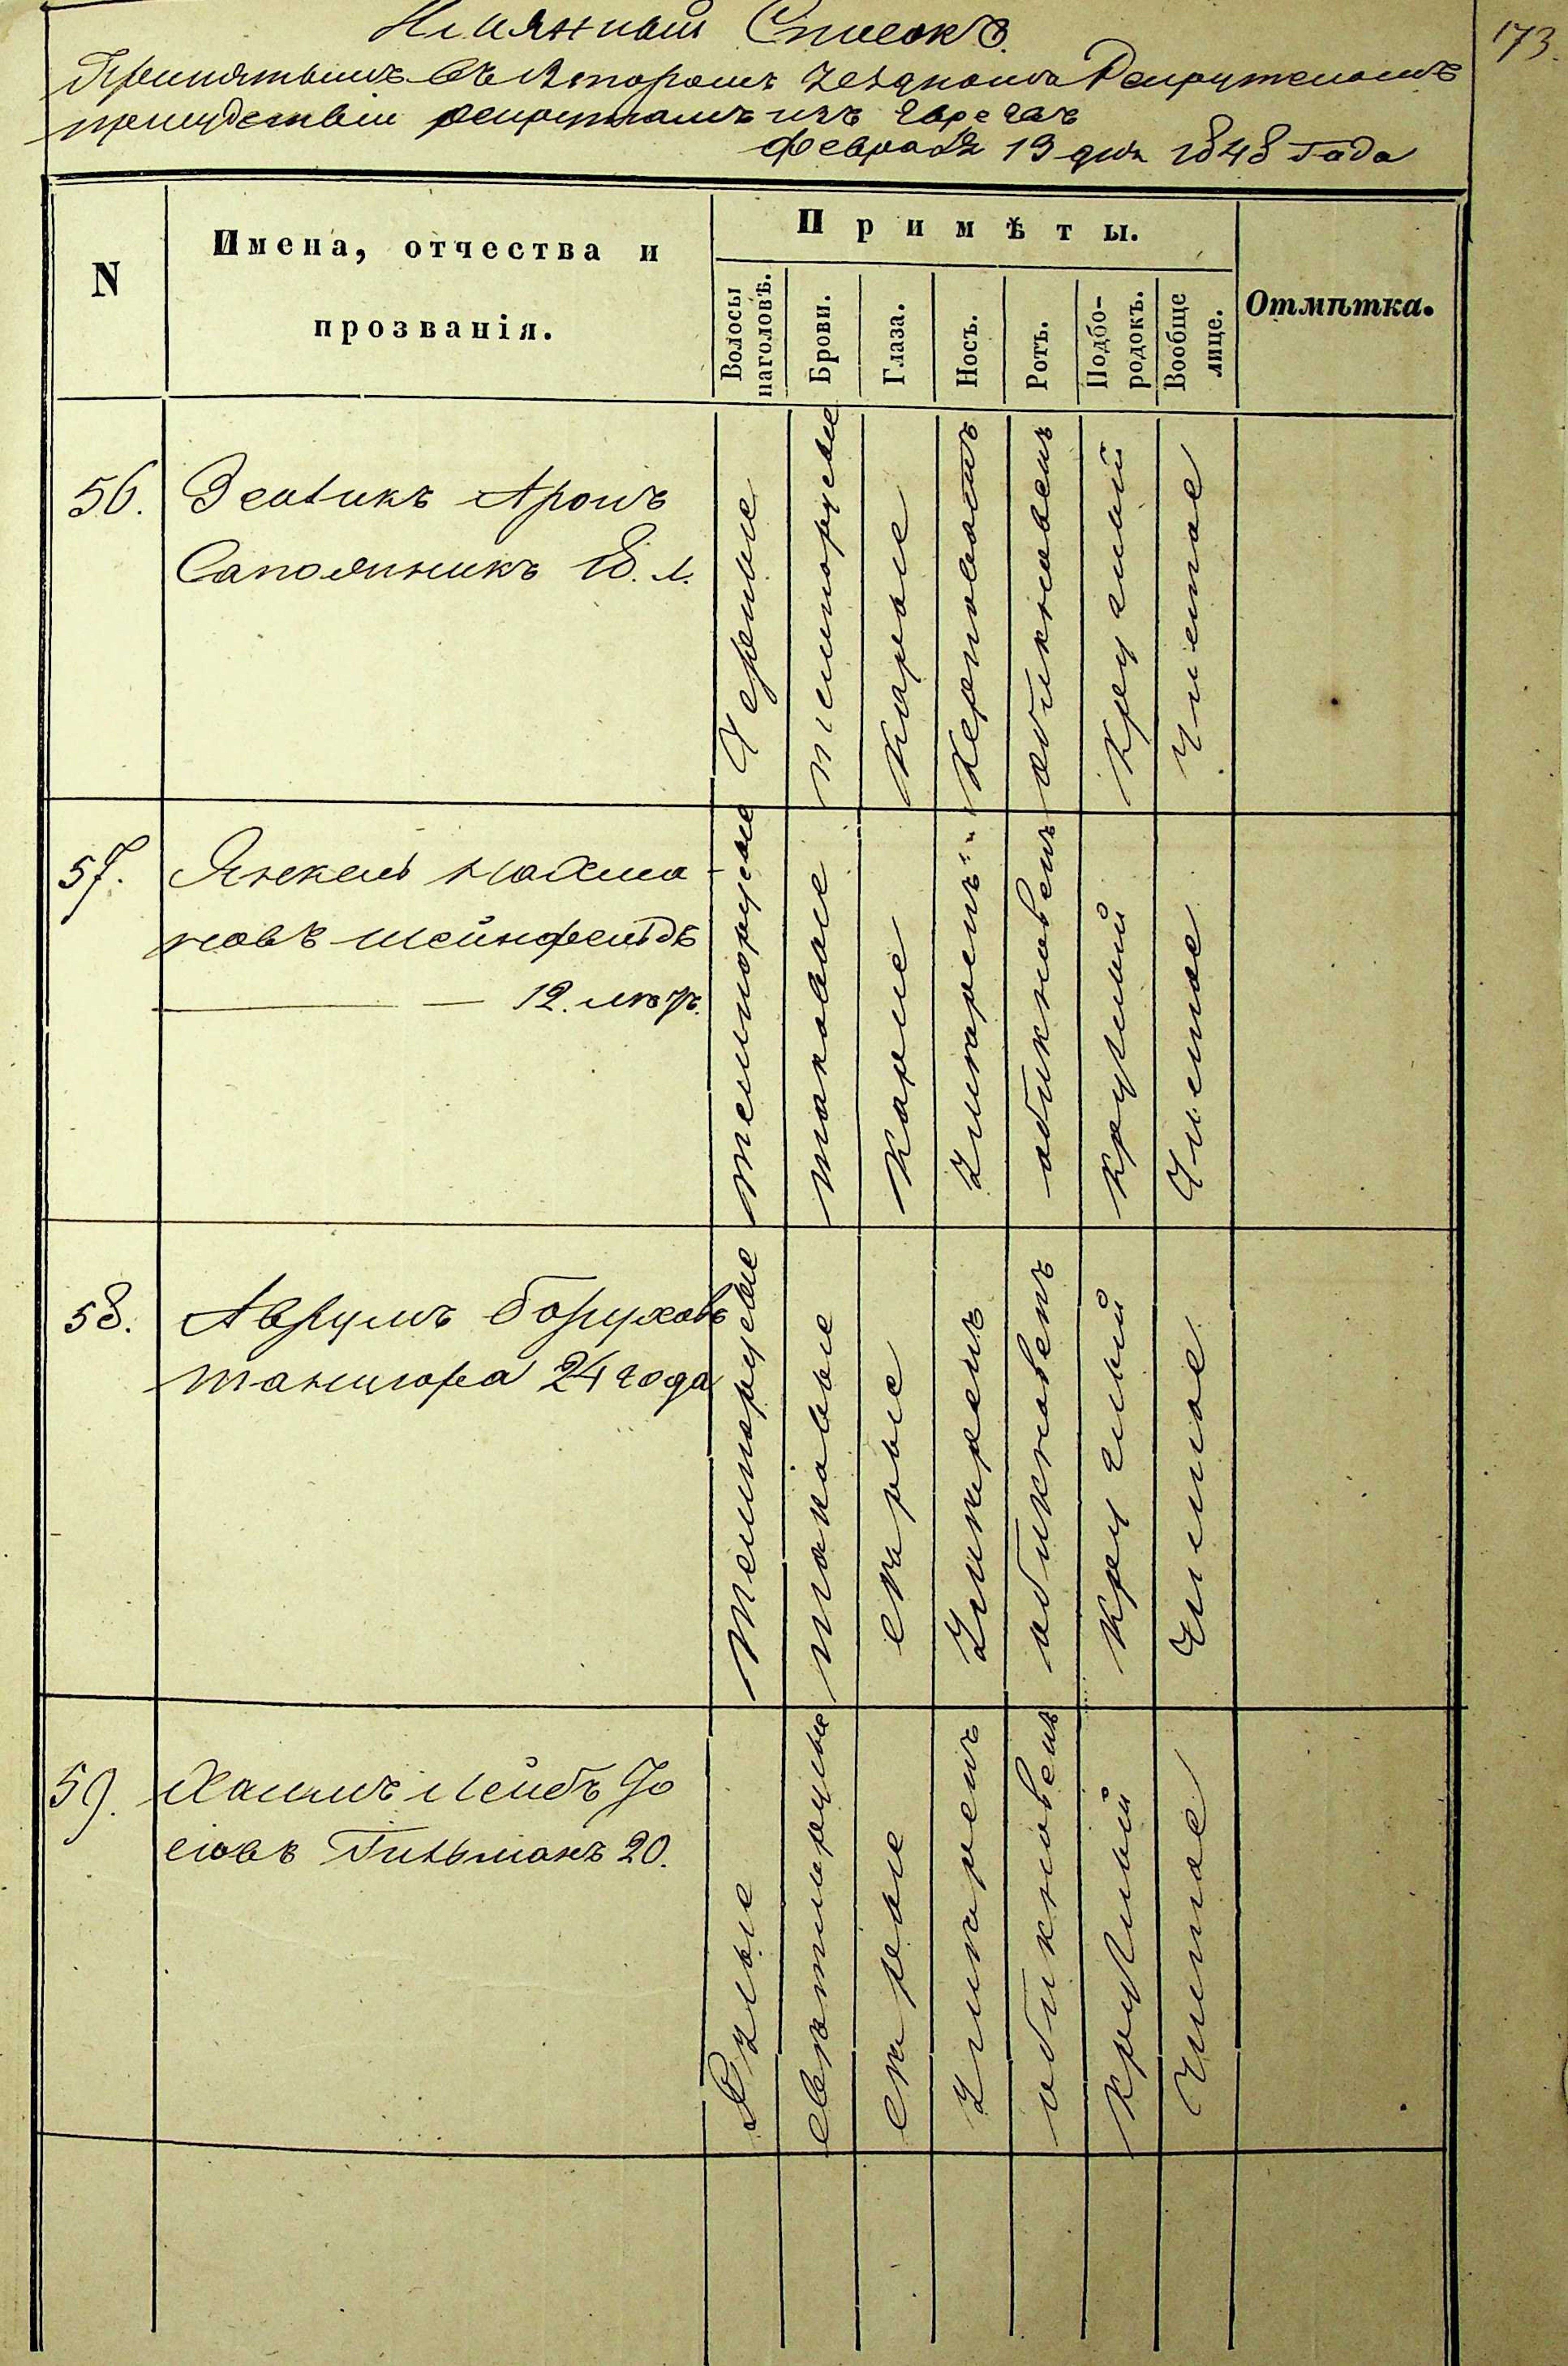 173.
Имянный Списокъ
Принятымъ въ Второмъ Уездномъ Рекрутскомъ
присудствіи рекрутамъ изъ Евреевъ
Февраля 19 дня 1848 Года
N
Имена, отчества и
прозванія.
Примѣты.
Волосы
наголовѣ.
Брови.
Глаза.
Носъ.
Ротъ.
Подбо-
родокъ.
Вообще
лице.
Отмѣтка.
56.
Зелвикъ Аронъ
Сапожникъ 18. л.
Черные
темнорусые
Карые
обикновенъ
Круглый
Чистое
57.
Янкель Нахма-
новъ Шейнфельдъ
12. летъ.
темнорусые
таковые
Карые
Умѣренъ
обикновенъ
круглый
Чистое
58.
Аврумъ Боруховъ
24 года
Темнорусые
таковые
серые
Умѣренъ
обикновенъ
круглый
Чистое
59.
Хаимъ Лейбъ Іо
сіовъ Гительманъ 20.
серые
Умѣренъ
обикновенъ
круглый
Чистое